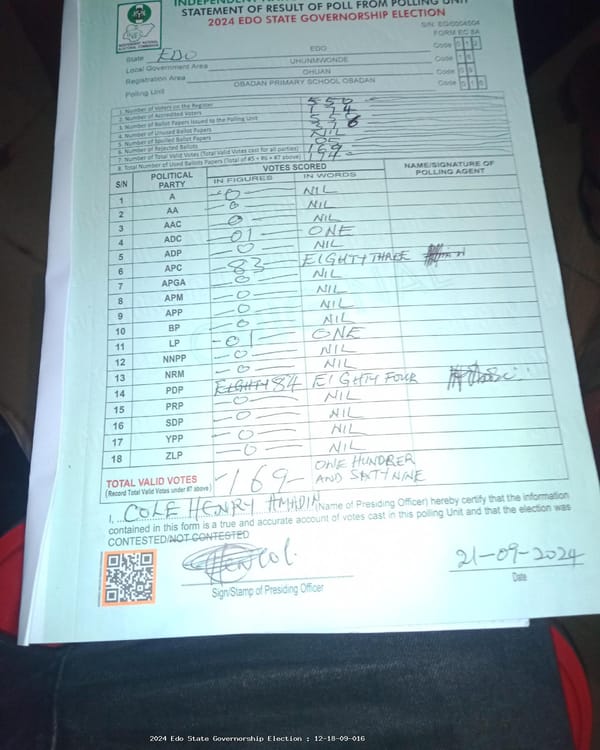 INDEPENDENT NATIONAL ELECTORAL COMMISSION
STATEMENT OF RESULT OF POLL FROM POLLING UNIT
2024 EDO STATE GOVERNORSHIP ELECTION
S/N: EG/0004504
FORM EC 8A
State EDO EDO Code
Local Government Area UHUNMWONDE Code
Registration Area OHUAN Code
Polling Unit OBADAN PRIMARY SCHOOL OBADAN Code
1. Number of Voters on the Register 550
2. Number of Accredited Voters 174
3. Number of Ballot Papers Issued to the Polling Unit
4. Number of Unused Ballot Papers 376
5. Number of Spoiled Ballot Papers NIL
6. Number of Rejected Ballots 05
7. Number of Total Valid Votes (Total Valid Votes cast for all parties) 169
8. Total Number of Used Ballots Papers (Total of #5 + #6 + #7 above) 174
S/N POLITICAL PARTY VOTES SCORED NAME/SIGNATURE OF POLLING AGENT
IN FIGURES IN WORDS
1 A 0 NIL
2 AA 0 NIL
3 AAC 0 NIL
4 ADC 01 ONE
5 ADP 0 NIL
6 APC 83 EIGHTY THREE
7 APGA 0 NIL
8 APM 0 NIL
9 APP 0 NIL
10 BP 0 NIL
11 LP 01 ONE
12 NNPP 0 NIL
13 NRM 0 NIL
14 PDP EIGHTY 84 EIGHTY FOUR
15 PRP 0 NIL
16 SDP 0 NIL
17 YPP 0 NIL
18 ZLP 0 NIL
TOTAL VALID VOTES 169 ONE HUNDRER
(Record Total Valid Votes under #7 above) AND SIXTY NINE
I, COLE HENRY AMADIN (Name of Presiding Officer) hereby certify that the information
contained in this form is a true and accurate account of votes cast in this polling Unit and that the election was
CONTESTED/NOT CONTESTED
21-09-2024
Sign/Stamp of Presiding Officer Date
2024 Edo State Governorship Election : 12-18-09-016